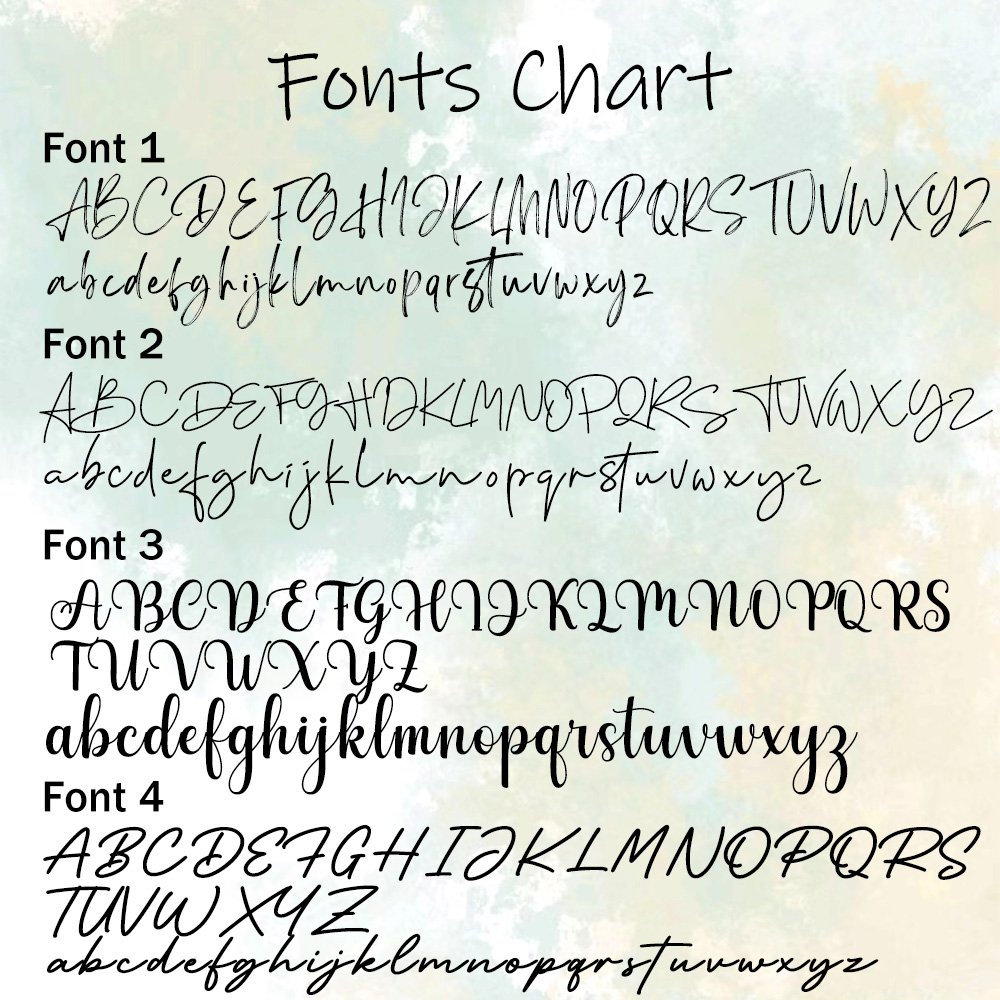 Fonts Chart
Font 1
ABCDEFGHIJKLMNOPQRSTUVWXYZ
abcdefghijklmnopqrstuvwxyz
Font 2
ABCDEFGHIJKLMNOPQRSTUVWXYZ
abcdefghijklmnopqrstuvwxyz
Font 3
ABCDEFGHIJKLMNOPQRS
TUVWXYZ
abcdefghijklmnopqrstuvwxyz
Font 4
ABCDEFGHIJKLMNOPQRS
TUVWXYZ
abcdefghijklmnopqrstuvwxyz